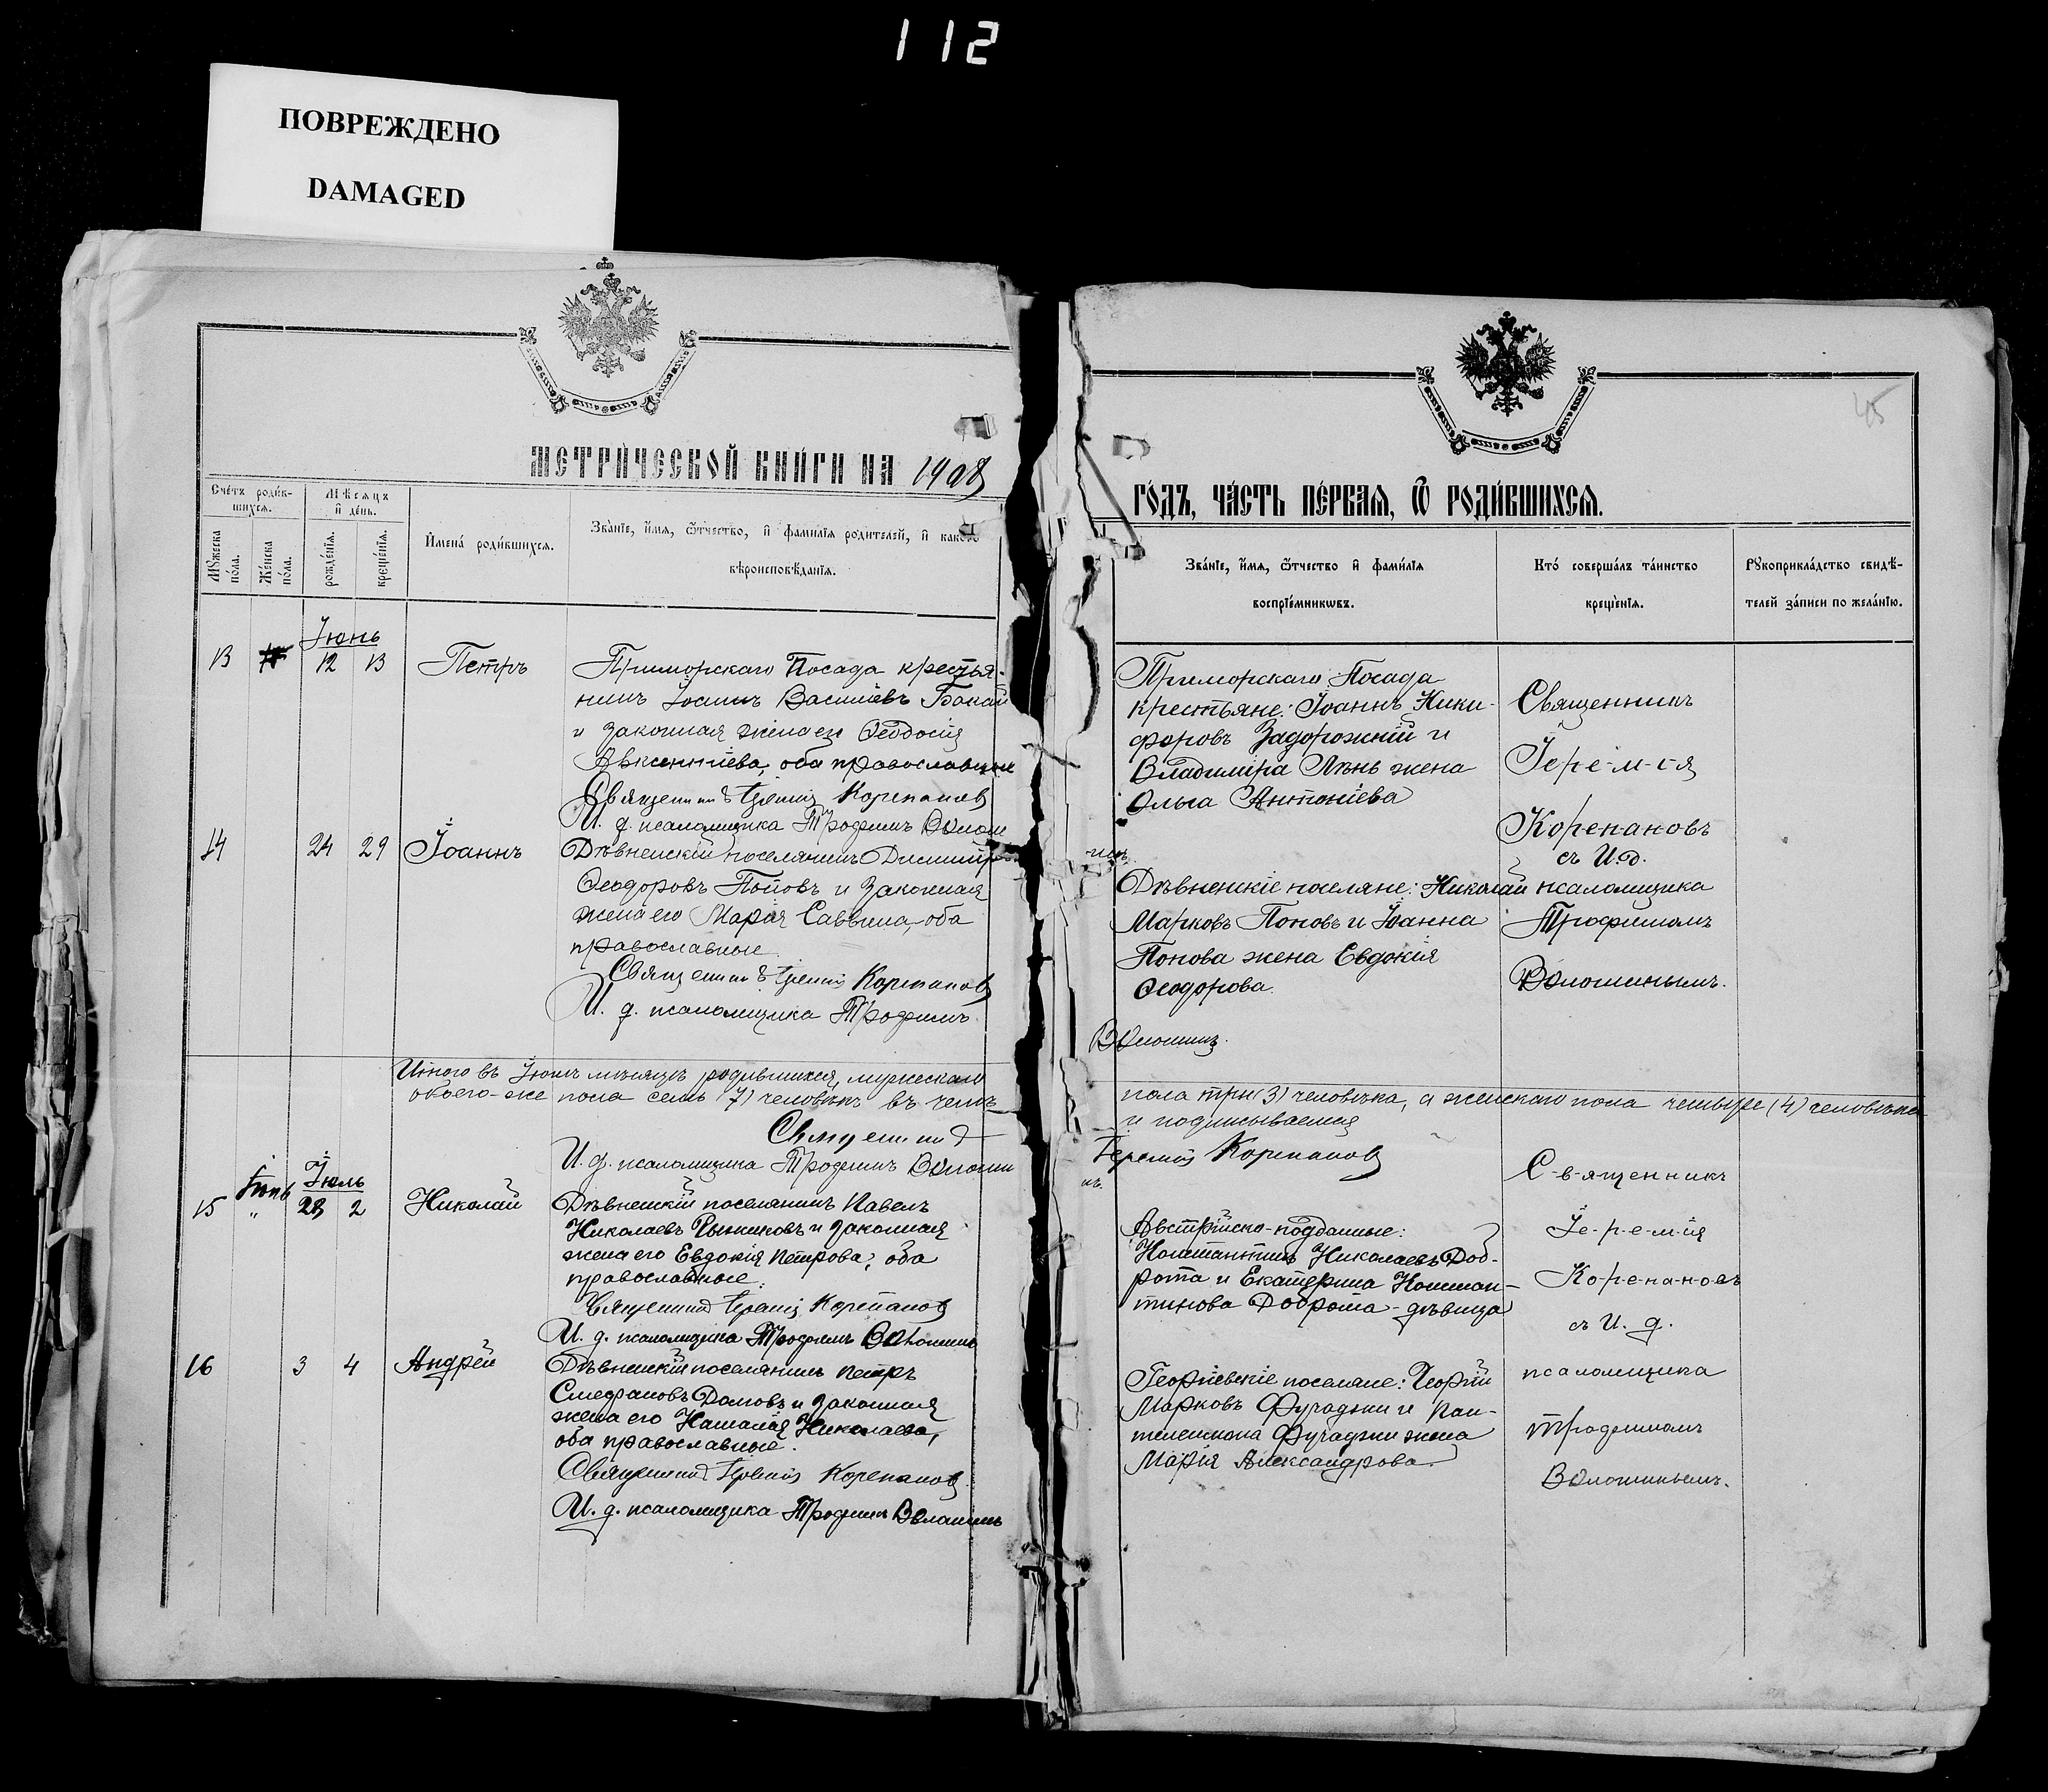 112
ПОВРЕЖДЕНО
DAMAGED
45
МЕТРИ́ЧЕСКОЙ КНИ́ГИ НА 1908
ГО́ДЪ, ЧА́СТЬ ПЕ́РВАЯ, Ѡ РОДИ́ВШИХСЯ.
Счётъ роди́в-
шихся.
Мѣсяцъ
и́ де́нь.
Мꙋжеска
по́ла.
Же́нска
по́ла.
рожде́нїя.
креще́нїя.
Имена́ роди́вшихся.
Зва́нїе, и́мя, ѻ́тчество, и́ фами́лїя роди́телей, и́ како́го
вѣроисповѣ́данїя.
Зва́нїе, и́мя, ѻ́тчество и́ фами́лїя
воспрїе́мникѡвъ.
Кто́ соверша́лъ та́инство
креще́нїя.
Рꙋкоприкла́дство свидѣ́-
телей за́писи по жела́нїю.
Іюнь
13 12 13 Петръ
Приморскаго Посада крестья-
нинъ Іоаннъ Василіевъ Бакай
и законная жена его Ѳеодосія
Авксентіева, оба православные
Священникъ Іеремія Корепановъ
И. д. псаломщика Трофимъ Волош
Приморскаго Посада
крестьяне: Іоаннъ Ники-
форовъ Задорожній и
Владиміра Лѣнь жена
Ольга Антоніева
Священникъ
Іеремія
Корепановъ
съ И.д.
псаломщика
Трофимомъ
Волошинымъ.
14 24 29 Іоаннъ
Дѣвненскій поселянинъ Димитрій
Ѳеодоровъ Поповъ и законная
жена его Марія Саввина, оба
православные.
Священникъ Іеремія Корепановъ
И. д. псаломщика Трофимъ
Волошинъ.
инъ.
Дѣвненскіе поселяне: Николай
Марковъ Поповъ и Іоанна
Попова жена Евдокія
Ѳеодорова.
Итого въ Іюнѣ мѣсяцѣ родившихся, мужескаго
пола три (3) человѣка, а женскаго пола четыре (4) человѣка
обоего-же пола семь (7) человѣкъ въ чемъ
и подписываемся
Священникъ
Іеремія Корепановъ
И. д. псаломщика Трофимъ Волошин
нъ.
Іюнь Іюль
15 " 28 2 Николай
Дѣвненскій поселянинъ Павелъ
Николаевъ и законная
жена его Евдокія Петрова, оба
православные.
Священникъ Іеремія Корепановъ
И. д. псаломщика Трофимъ Волошинъ
Австрійско-подданные:
Константинъ Николаевъ Доб-
рота и Екатерина Констан-
тинова Доброта - дѣвица
Священникъ
Іеремія
Корепановъ
съ И. д.
псаломщика
Трофимомъ
Волошинымъ.
16 3 4 Андрей
Дѣвненскій поселянинъ Петръ
Стефановъ Домовъ и законная
жена его Наталія Николаева,
оба православные.
Священникъ Іеремія Корепановъ
И. д. псаломщика Трофимъ Волошинъ
Георгіевскіе поселяне: Георгій
Марковъ Фучаджи и Пан-
телеимона Фучаджи жена
Марія Александрова.